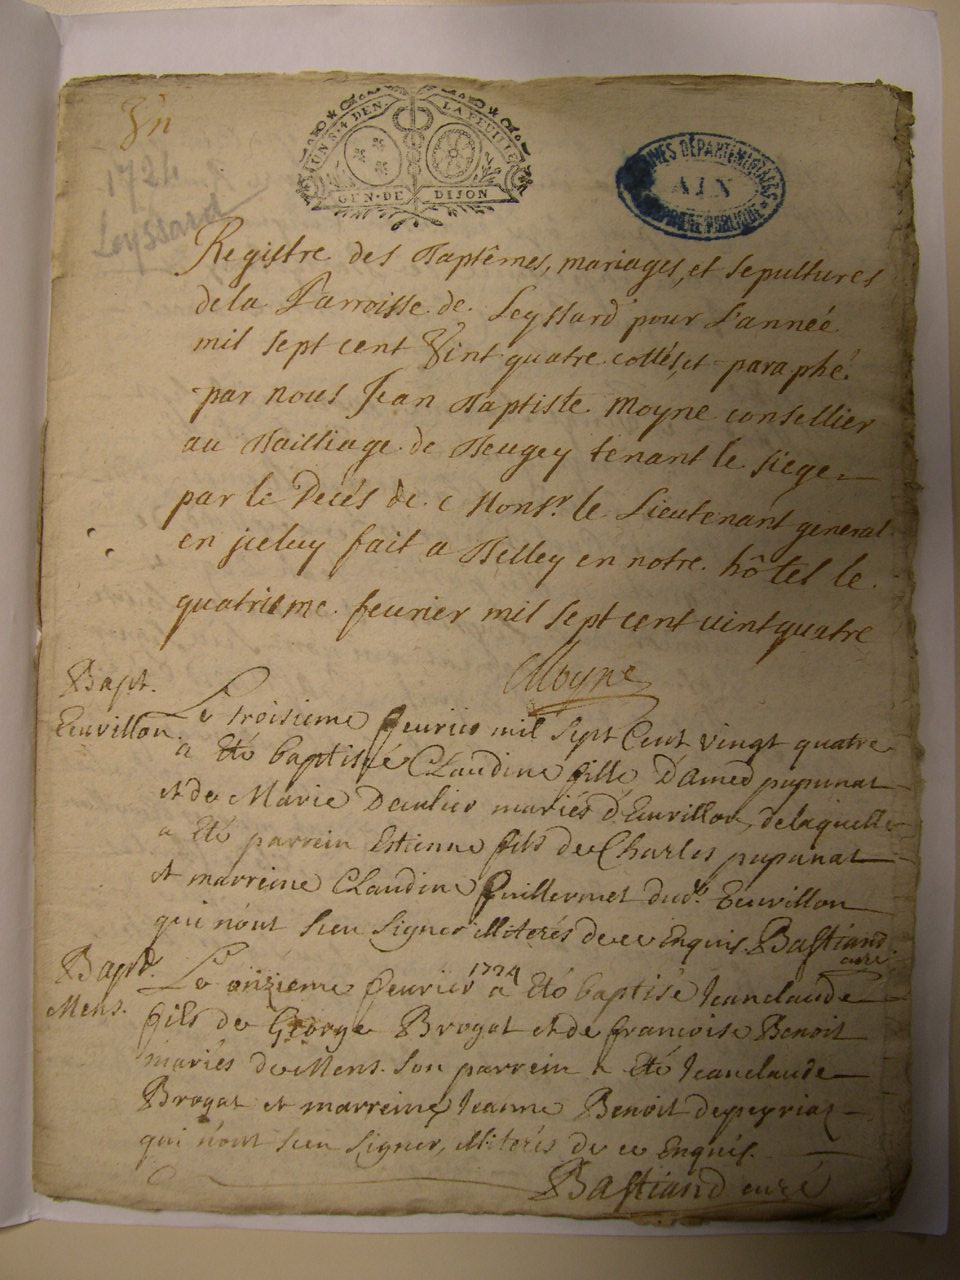 Un
1724
Leyssard
UN S. 4 DEN. LA FEUILLE
GEN. DE DIJON
ARCHIVES DÉPARTEMENTALES
AIN
PROPRIÉTÉ PUBLIQUE
Registre des Baptêmes, mariages, et sepultures
de la Parroisse de Leyssard pour L'année
mil sept cent Vint quatre cottés, et paraphé
par nous Jean Baptiste Moyne consellier
au Bailliage de Beugey tenant le siege
par le Decés de Monsr. le Lieutenant general
en jceluy fait a Belley en notre hôtel le
quatrieme feurier mil sept cent uint quatre
Moyne
Bapt.
Euvillon.
Le troisieme feurier mil sept Cent vingt quatre
a Eté baptisée CLaudine fille D'amed pupunat
et de Marie Deculier mariés d'Euvillon, de laquelle
a Eté parrein Estienne fils de Charles pupunat
et marreine CLaudine Guillermet dud. Euvillon
qui n'ont sceu signer illiterés de ce Enquis. Bastiand
curé
Bapt.
Mens.
Le onzieme feurier 1724 a Eté baptisé Jeanclaude
fils de George Brogat et de francoise Benoit
mariés de Mens. Son parrein a Eté Jeanclaude
Brogat et marreine Jeanne Benoit de peyriat
qui n'ont sceu signer, illiterés de ce Enquis.
Bastiand curé